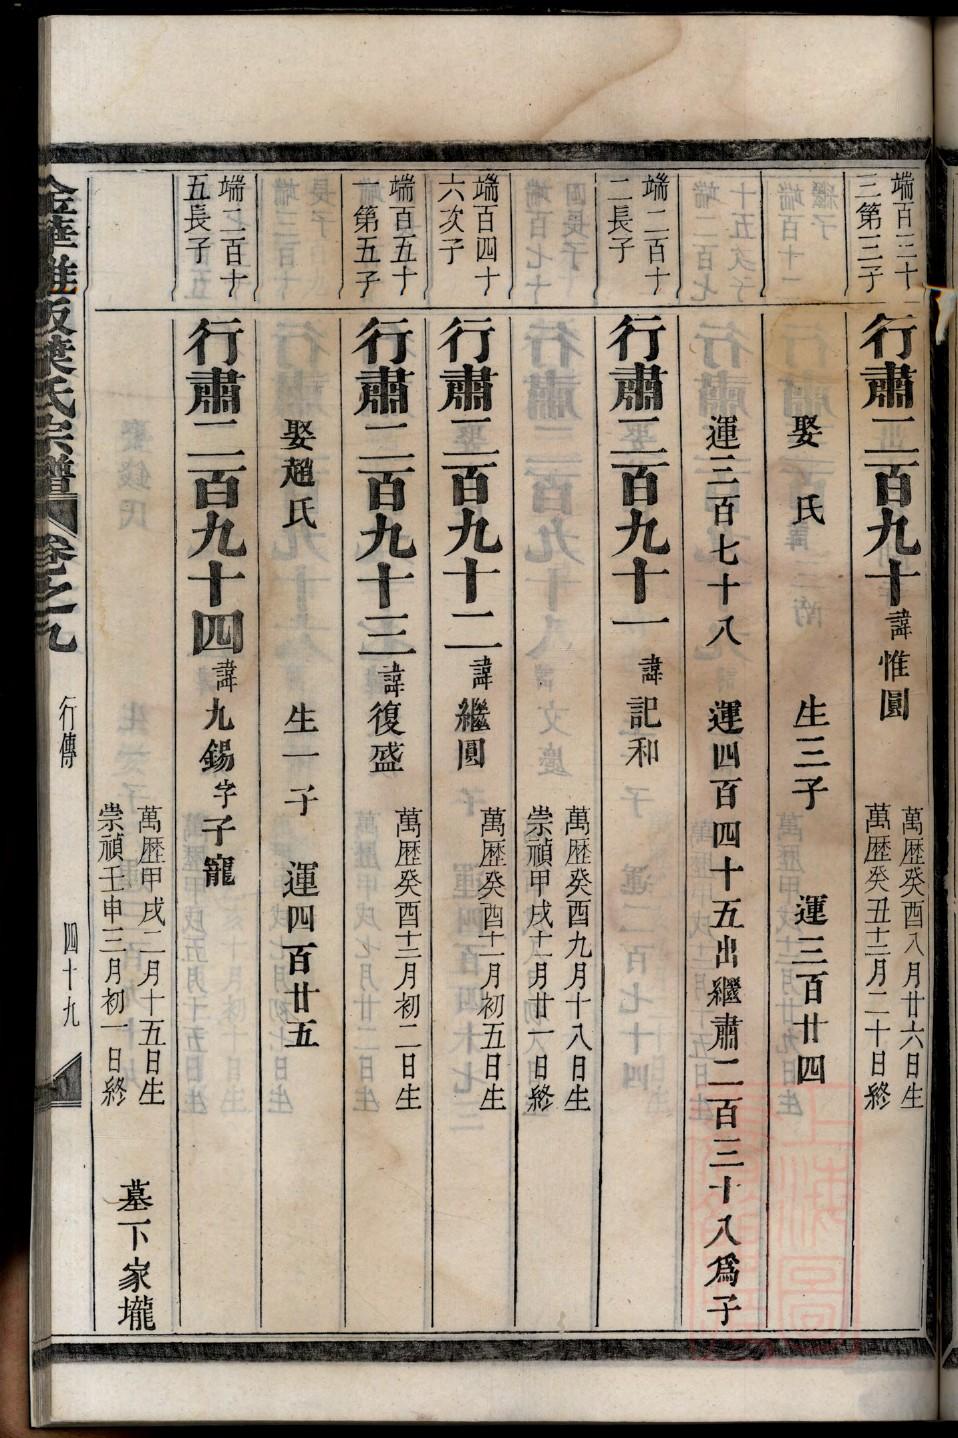 端百三十
三第三子
行肅二百九十諱惟圓
萬歷癸酉八月廿六日生
萬歷癸丑十二月二十日終
娶 氏 生三子 運三百廿四
運三百七十八 運四百四十五出繼肅二百三十八爲子
端二百十
二長子
行肅二百九十一諱記和
萬歷癸酉九月十八日生
崇禎甲戌十月廿一日終
端百四十
六次子
行肅二百九十二諱繼圓
萬歷癸酉十一月初五日生
端百五十
一第五子
行肅二百九十三諱復盛
萬歷癸酉十二月初二日生
娶趙氏 生一子 運四百廿五
端二百十
五長子
行肅二百九十四諱九錫字子寵
萬歷甲戌二月十五日生
崇禎壬申三月初一日終
墓下家壠
氏宗譜
卷之九
行傳
四十九